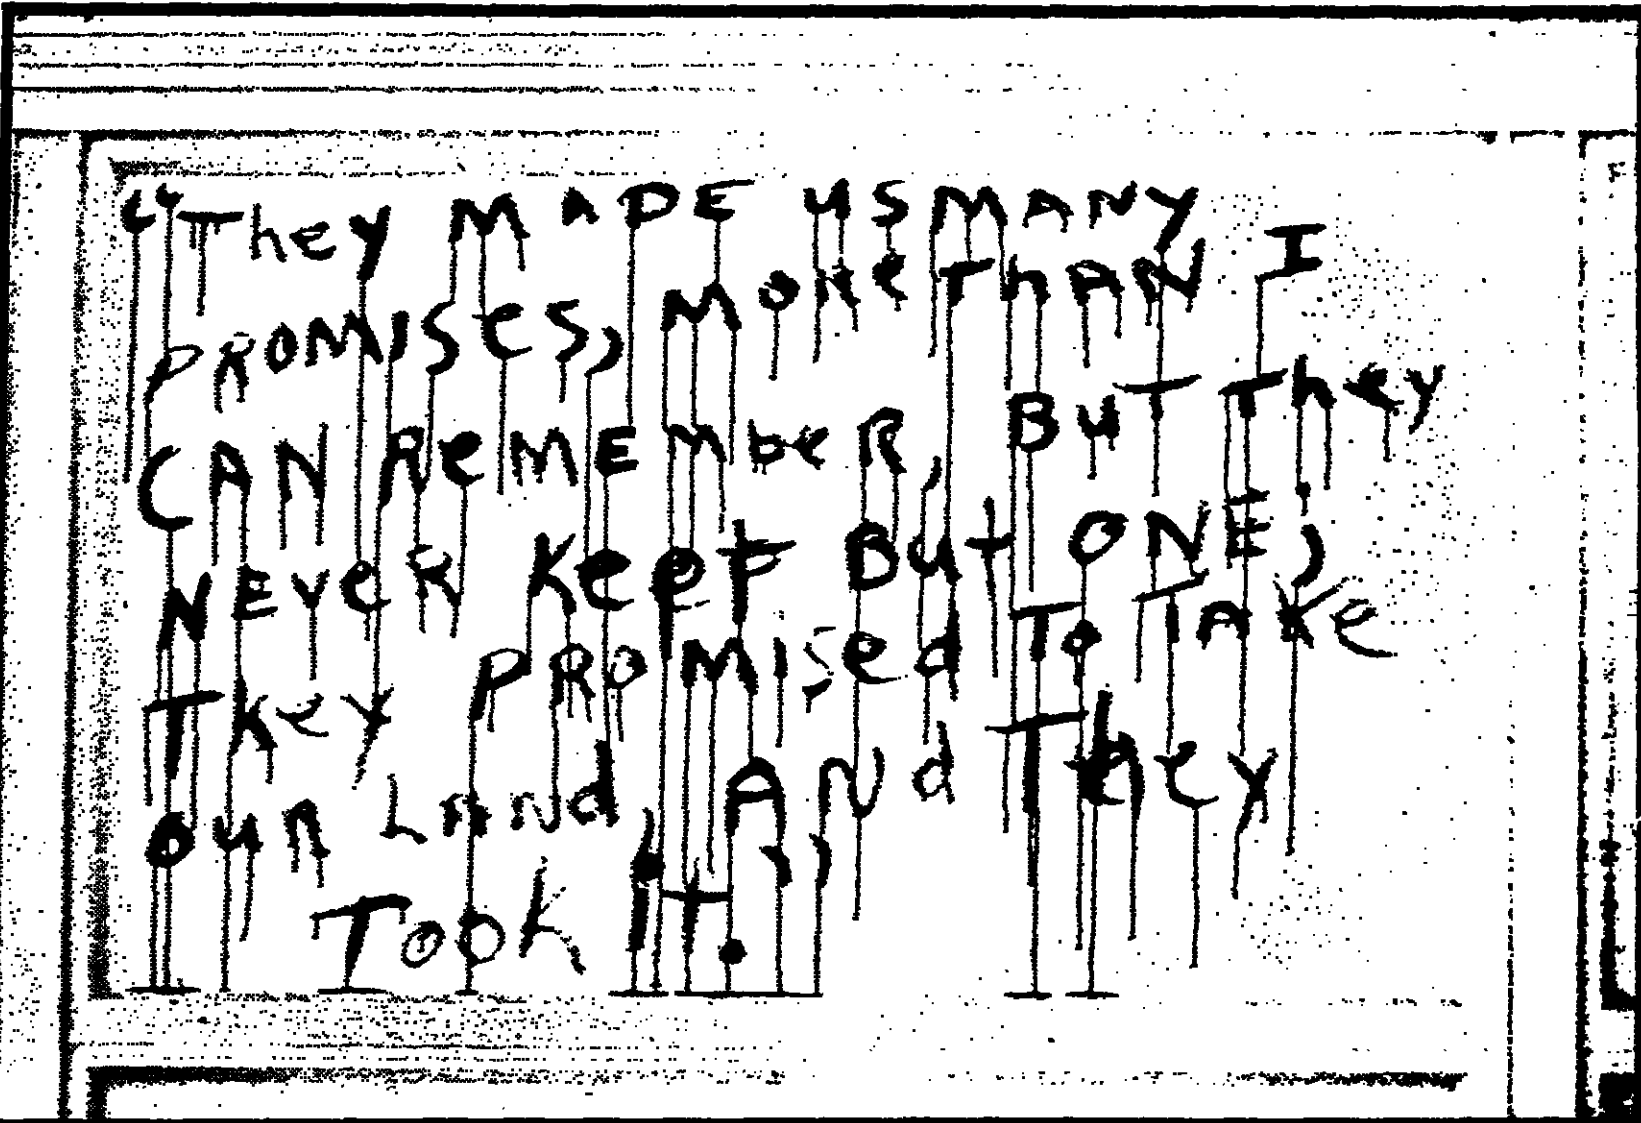 “They MADE us MANY
PROMISES, MORE ThAN I
CAN ReMEMbeR, BuT They
NEVER KeepT BuT ONE;
They PROMISed To TAKe
ouR LANd, ANd They
TOOK IT.”